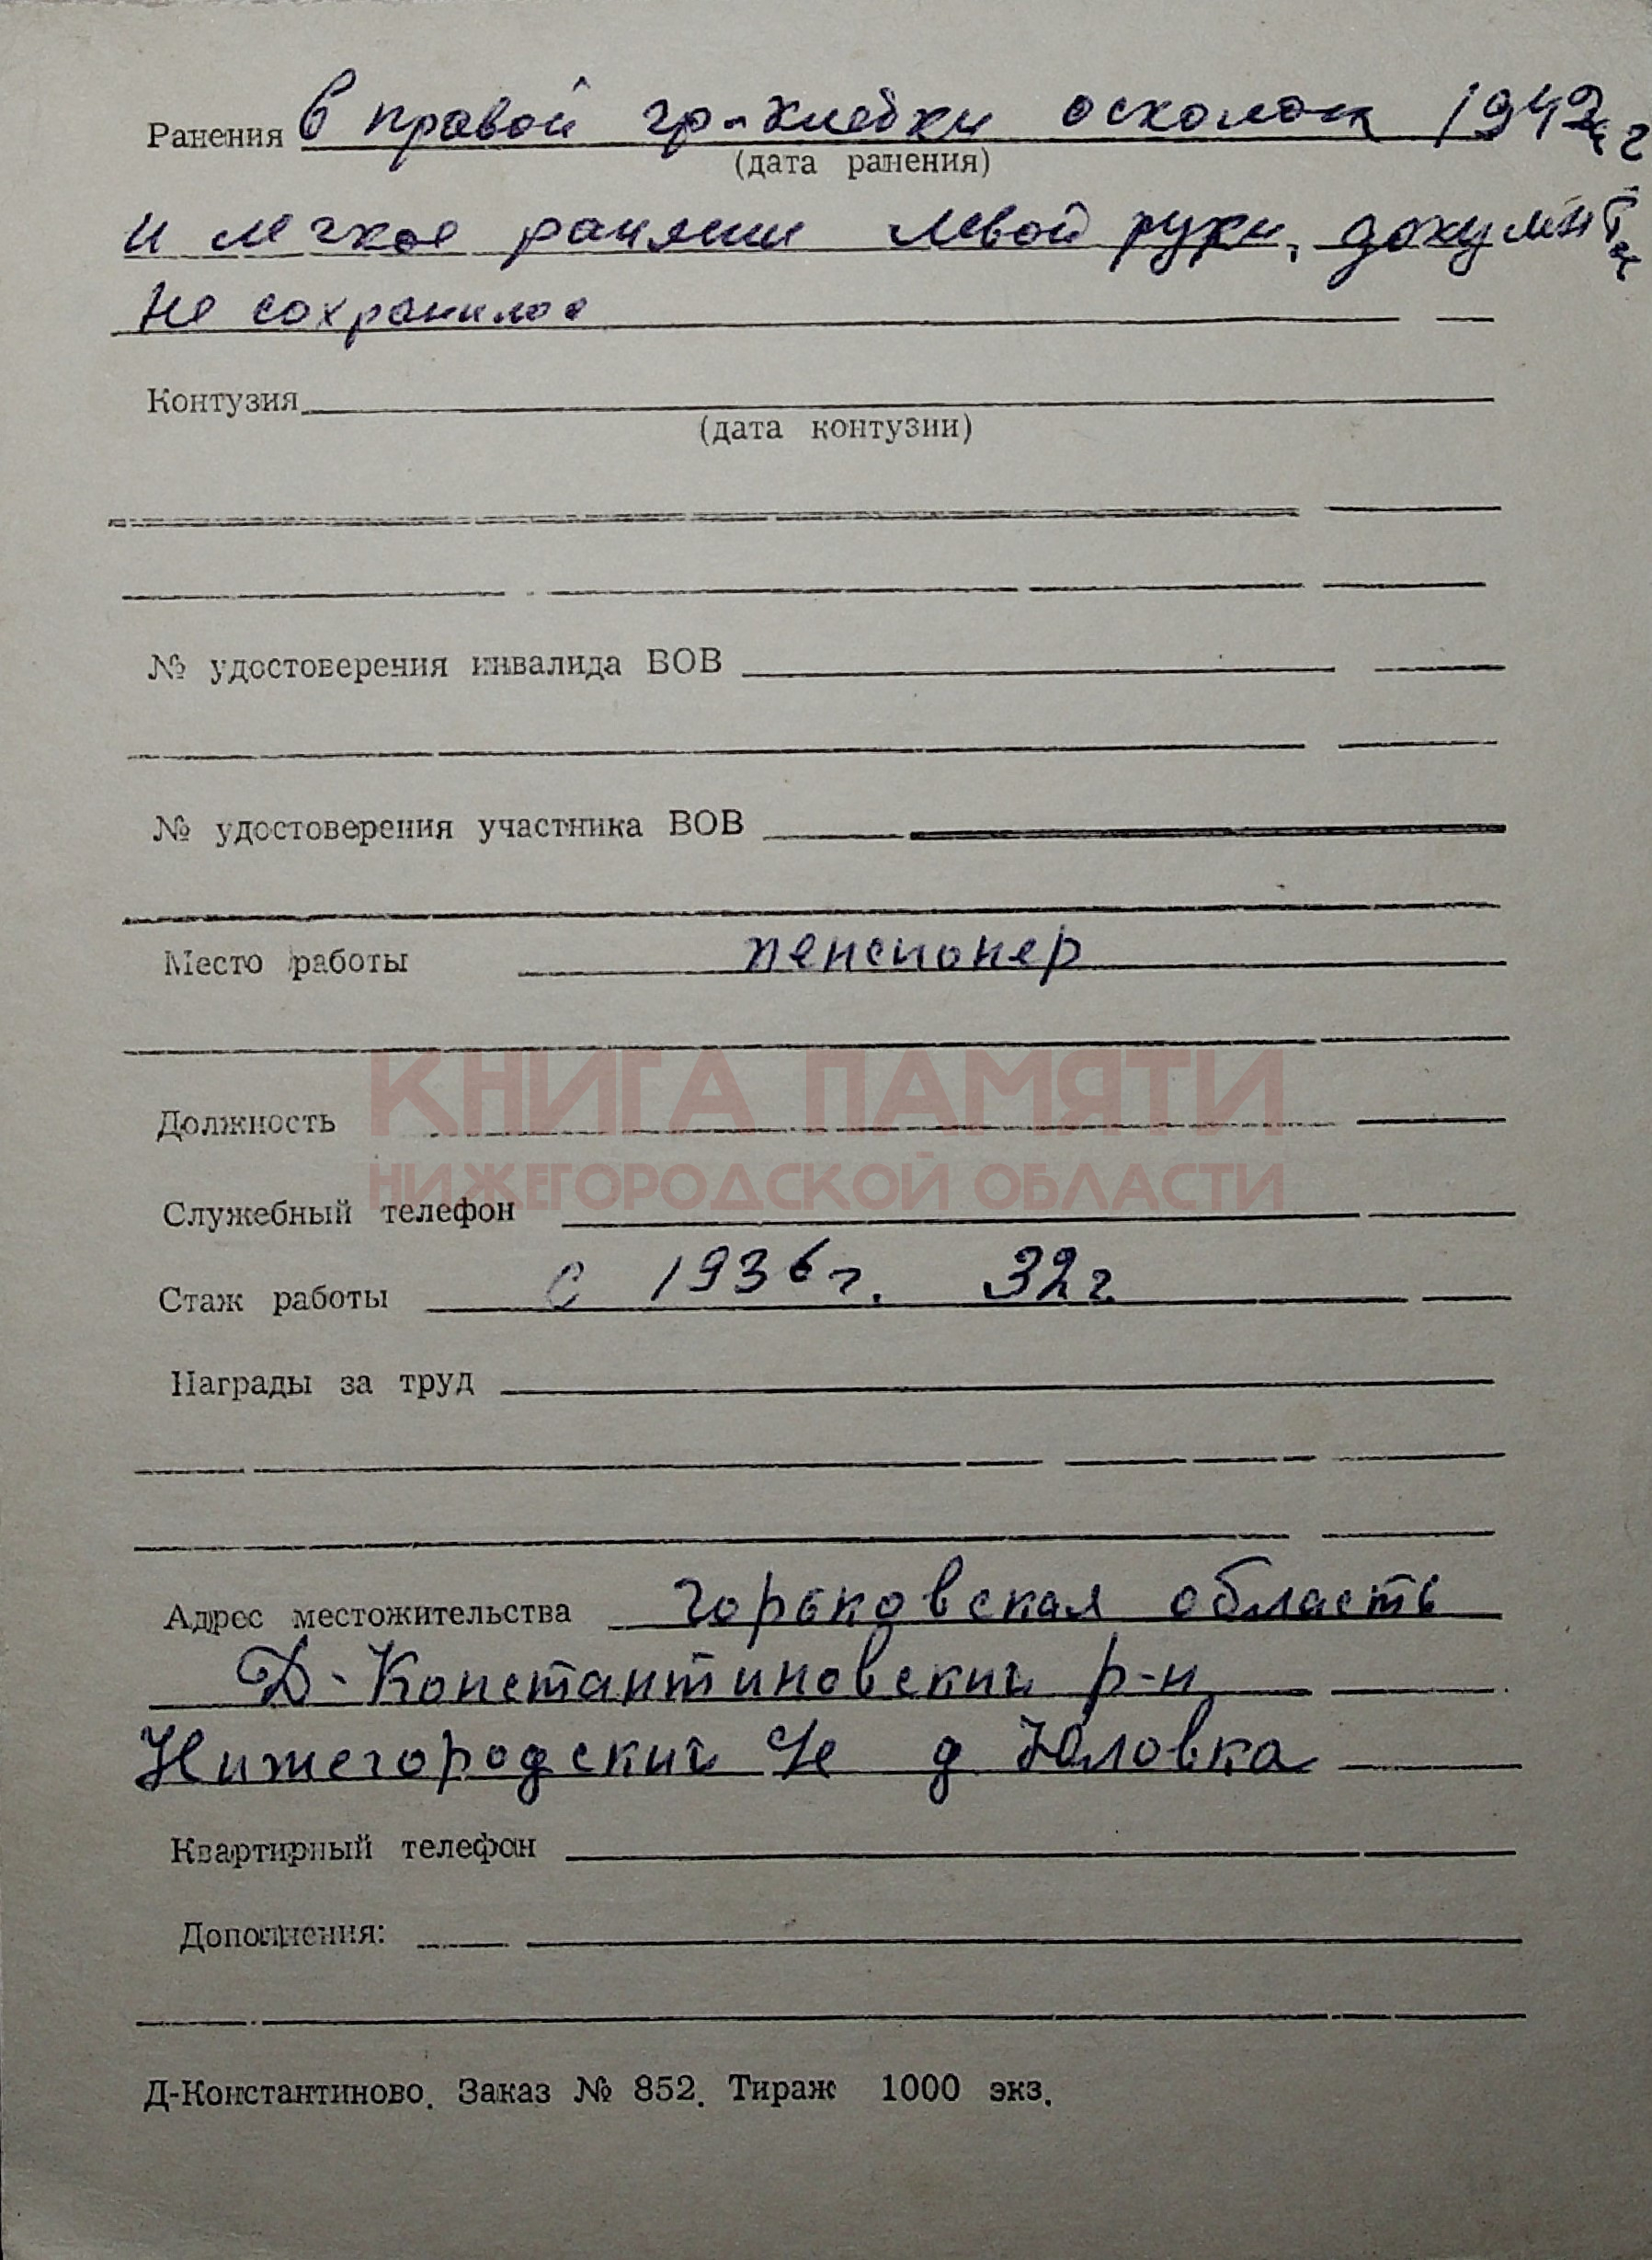 Ранения в правой гр-клетки осколок 1942 г
(дата ранения)
и легкое ранение левой руки, документ
не сохранилос
Контузия
(дата контузии)
№ удостоверения инвалида ВОВ
№ удостоверения участника ВОВ
Место работы пенсионер
КНИГА ПАМЯТИ
Должность
НИЖЕГОРОДСКОЙ ОБЛАСТИ
Служебный телефон
Стаж работы с 1936 г. 32 г
Награды за труд
Адрес местожительства Горьковская область
Д-Константиновский р-н
Нижегородский д Юловка
Квартирный телефон
Дополнения:
Д-Константиново. Заказ № 852. Тираж 1000 экз.